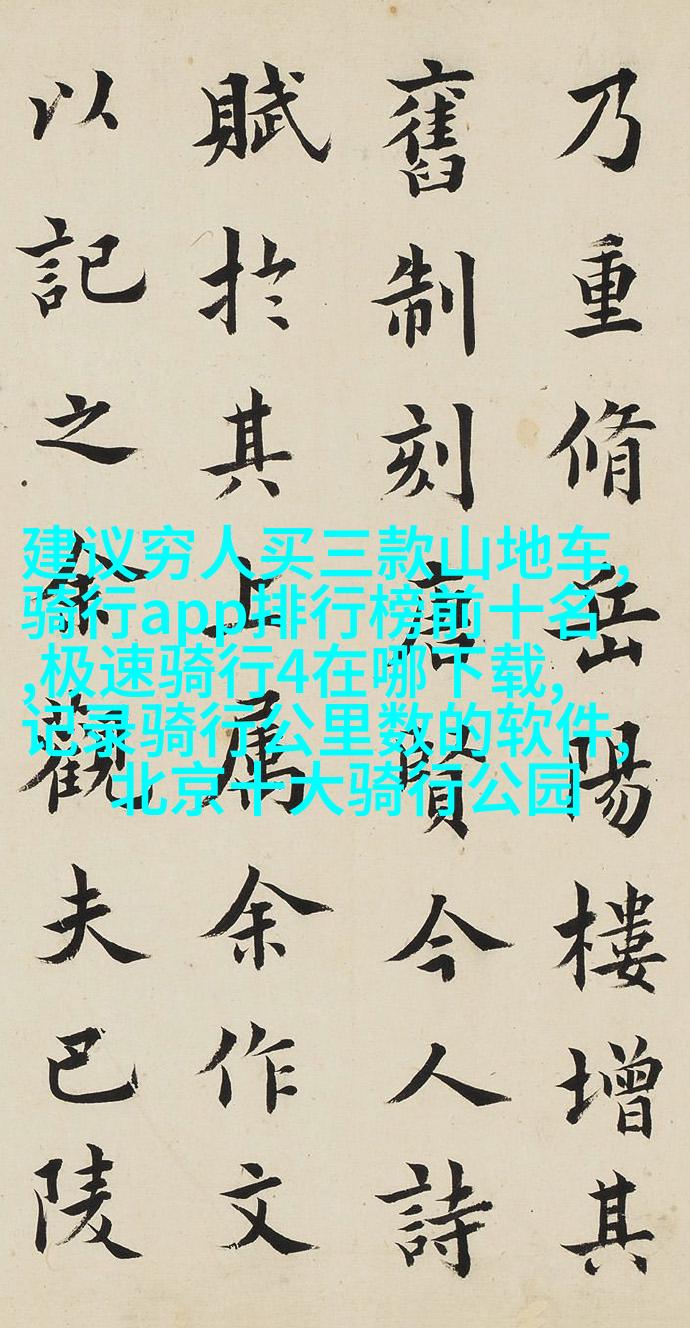 乃重脩岳陽樓增其
舊制刻唐賢今人詩
賦於其上屬余作文
以記之余觀夫巴陵
建议穷人买三款山地车,
骑行app排行榜前十名
,极速骑行4在哪下载,
记录骑行公里数的软件,
北京十大骑行公园